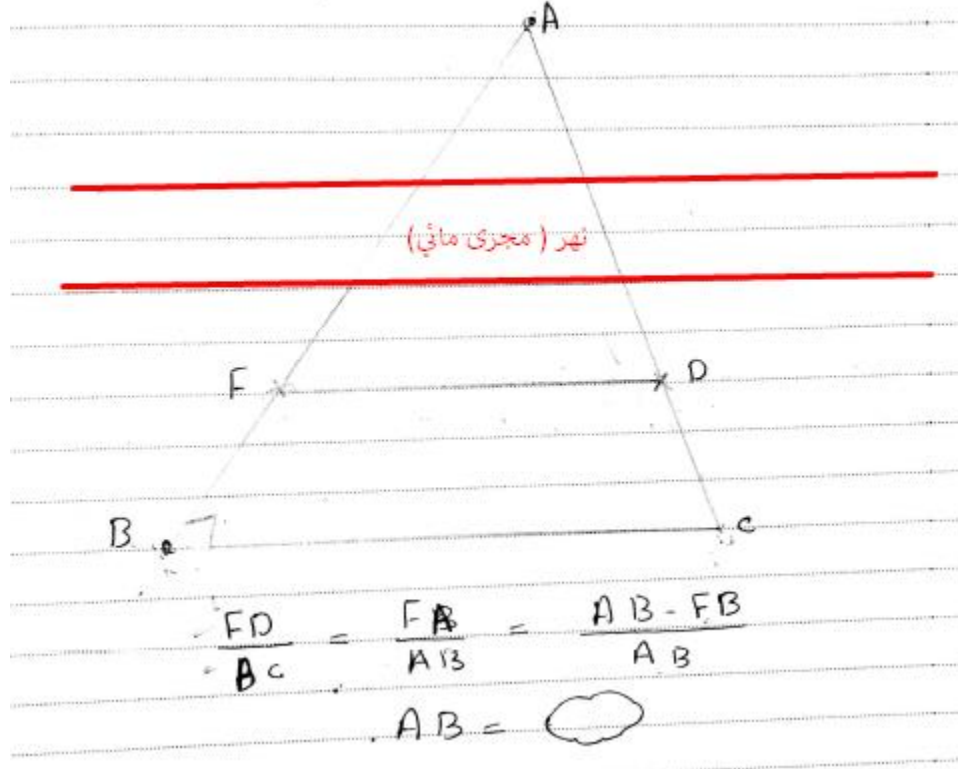 A
نهر ( مجرى مائي)
F D
B C
FD / BC = FA / AB = AB - FB / AB
AB =